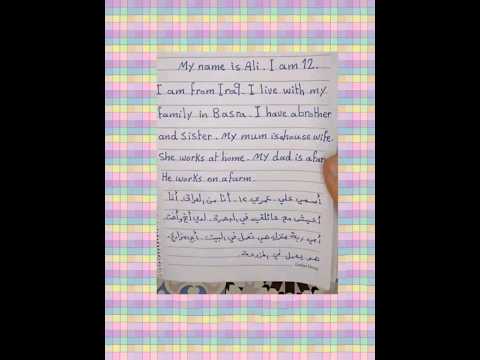 My name is Ali. I am 12.
I am from Iraq. I live with my
family in Basra. I have abrother
and Sister. My mum is ahouse wife.
She works at home. My dad is afarm
He works on afarm.
أسمي علي. عمري ١٢. أنا من العراق. أنا
أعيش مع عائلتي في البصرة. لدي أخ وأخت.
أمي ربة منزل. هي تعمل في البيت. أبي مزارع.
هو يعمل في المزرعة.